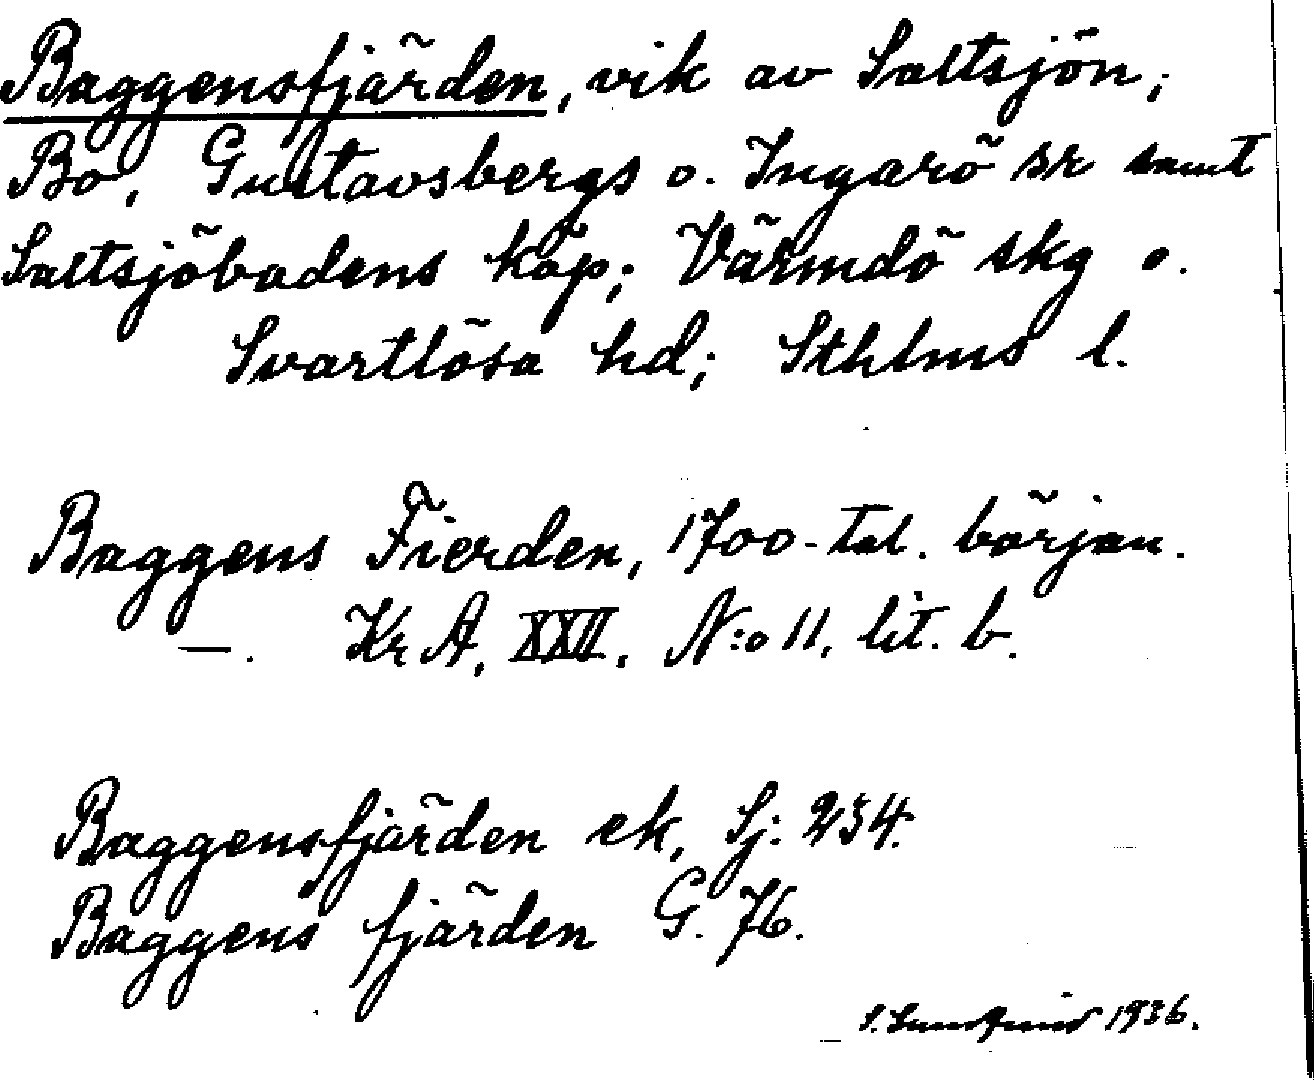 Baggensfjärden, vik av Saltsjön;
Bo, Gustavsbergs o. Ingarö sr samt
Saltsjöbadens köp; Värmdö skg o.
Svartlösa hd; Sthlms l.
Baggens Fierden, 1700-tal. början.
—. KrA, XXII. N:o 11. lit. b.
Baggensfjärden ek, Sj: 234.
Baggens fjärden G. 76.
1936.